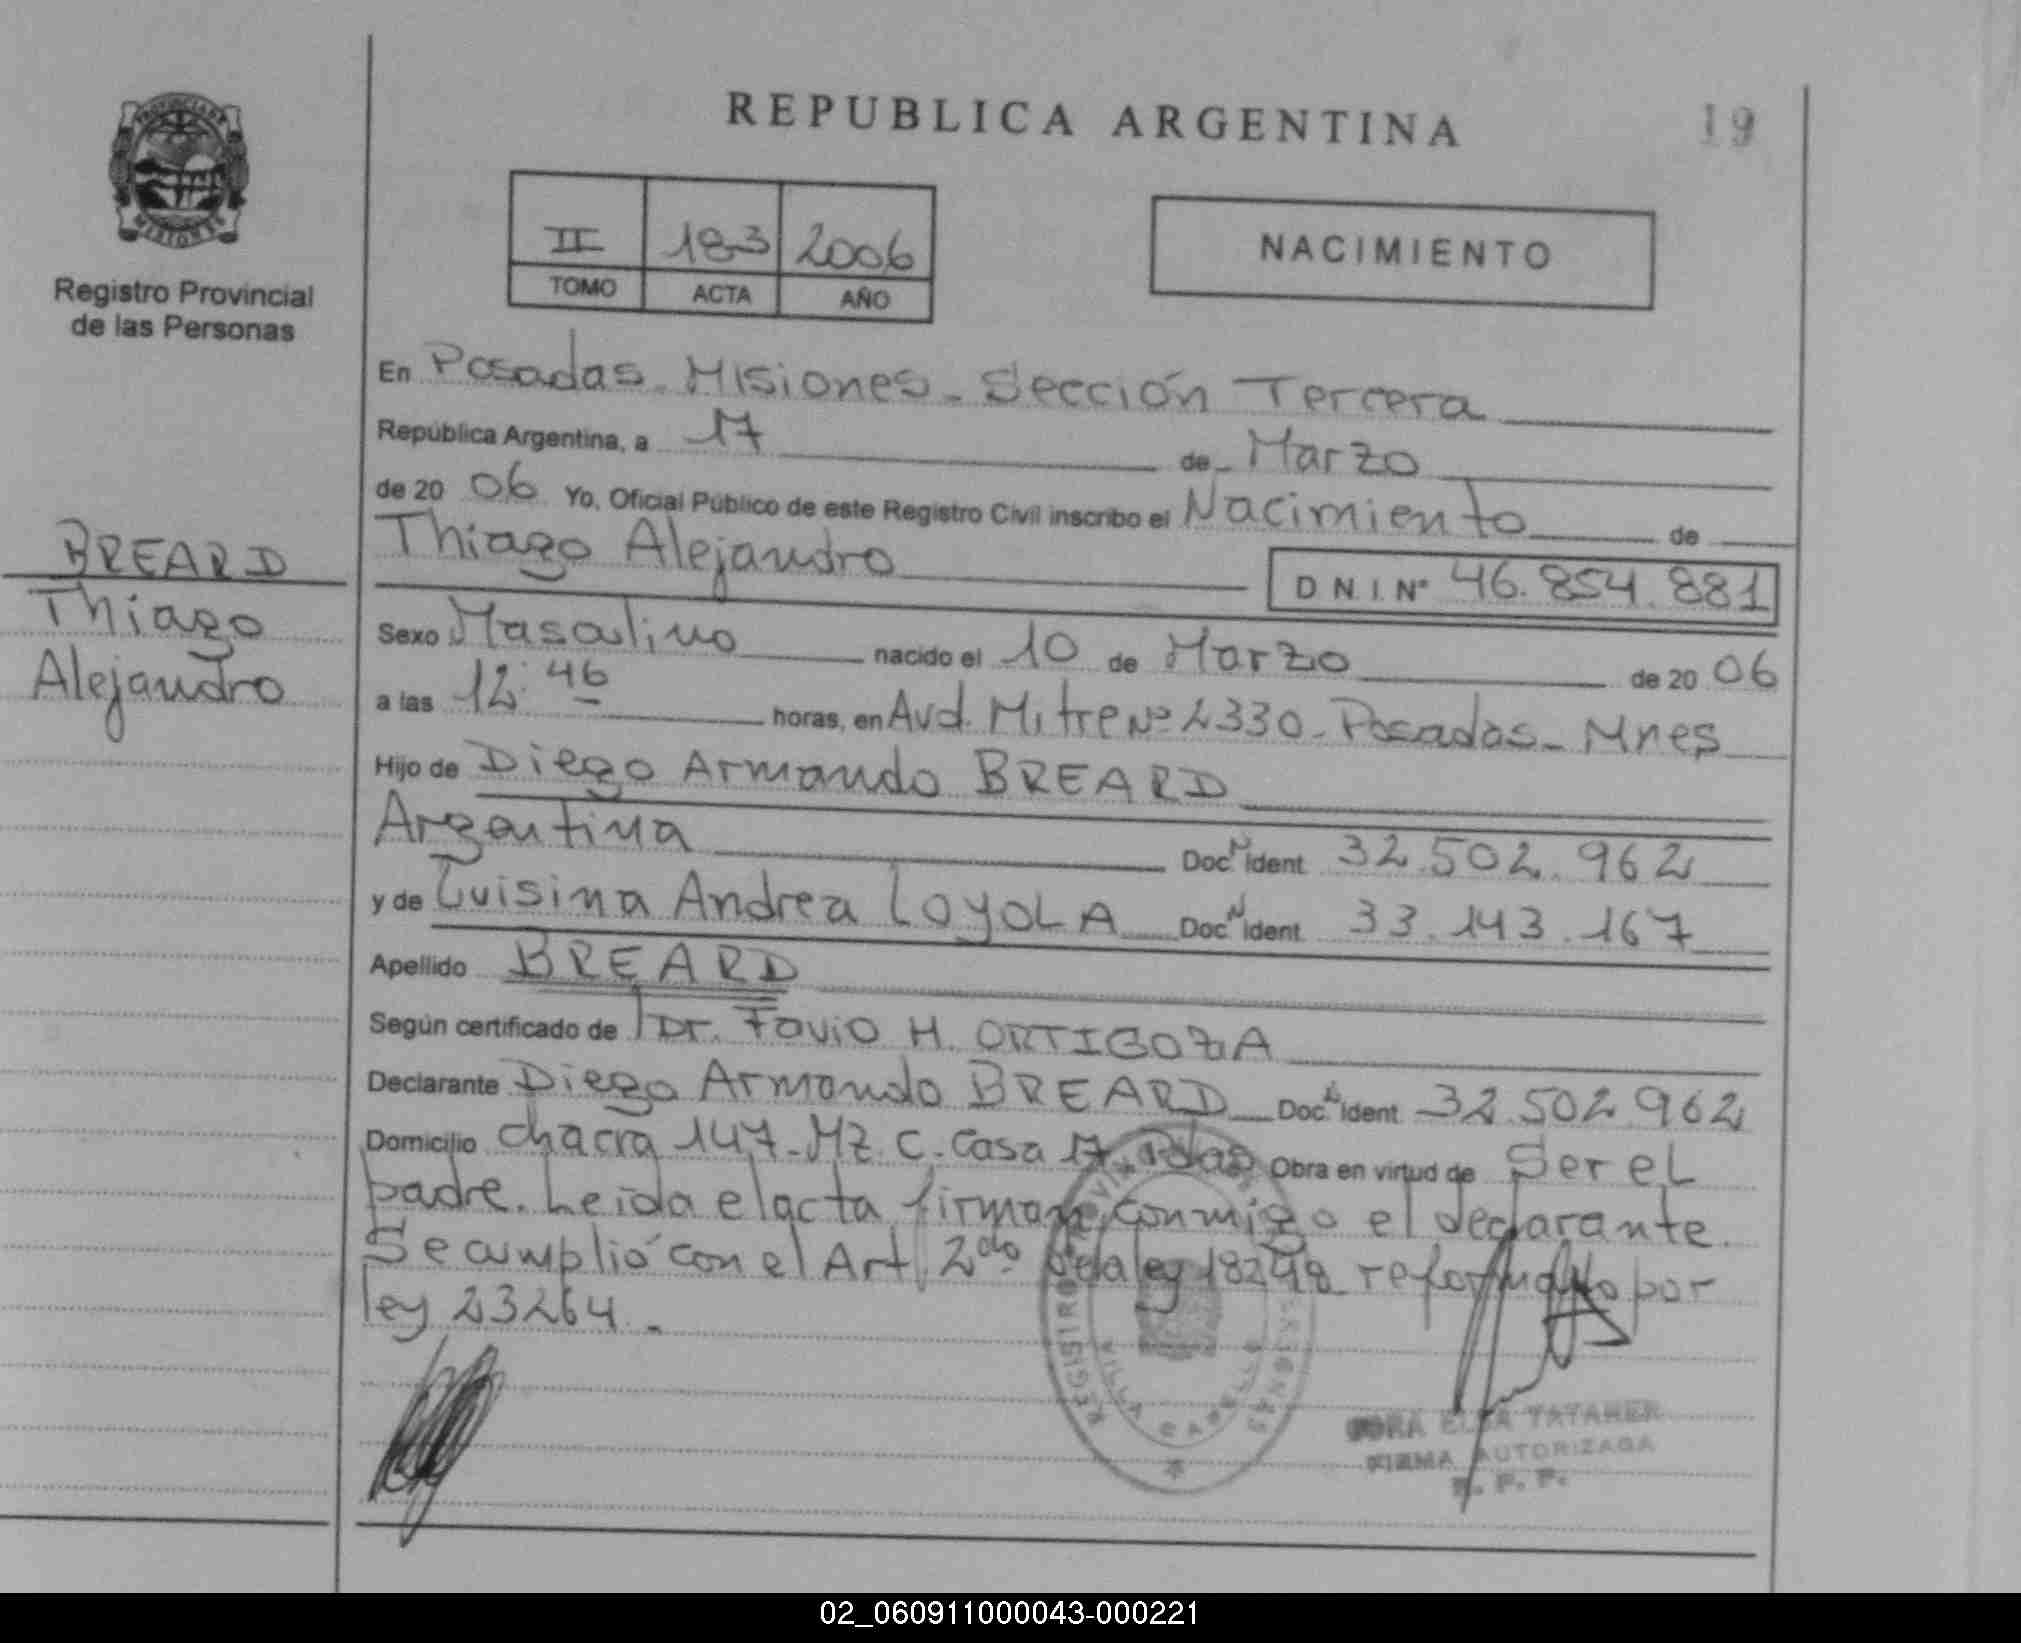 REPUBLICA ARGENTINA
19
PROVINCIA DE
MISIONES
Registro Provincial
de las Personas
II 183 2006
TOMO ACTA AÑO
NACIMIENTO
En Posadas - Misiones - Sección Tercera
República Argentina, a 17 de Marzo
de 20 06 Yo, Oficial Público de este Registro Civil inscribo el Nacimiento de
Thiago Alejandro D N.I. Nº 46.854.881
BREARD
Thiago
Alejandro
Sexo Masculino nacido el 10 de Marzo de 20 06
a las 12:46 horas, en Avd. Mitre Nº 2330 - Posadas - Mnes
Hijo de Diego Armando BREARD
Argentina Doc N Ident 32.502.962
y de Luisina Andrea LOYOLA Doc N Ident 33.143.167
Apellido BREARD
Según certificado de Dr. Favio H. ORTIGOZA
Declarante Diego Armando BREARD Doc. N Ident 32.502.962
Domicilio chacra 147 - MZ. C. Casa 17 Pdas Obra en virtud de Ser el
padre. Leída el acta, firman conmigo el declarante.
Se cumplió con el Art. 2do de la ley 18248 reformado por
ley 23264. -
REGISTRO
VILLA CABELLO
ELSA TATAREN
FIRMA AUTORIZADA
R. P. P.
02_060911000043-000221